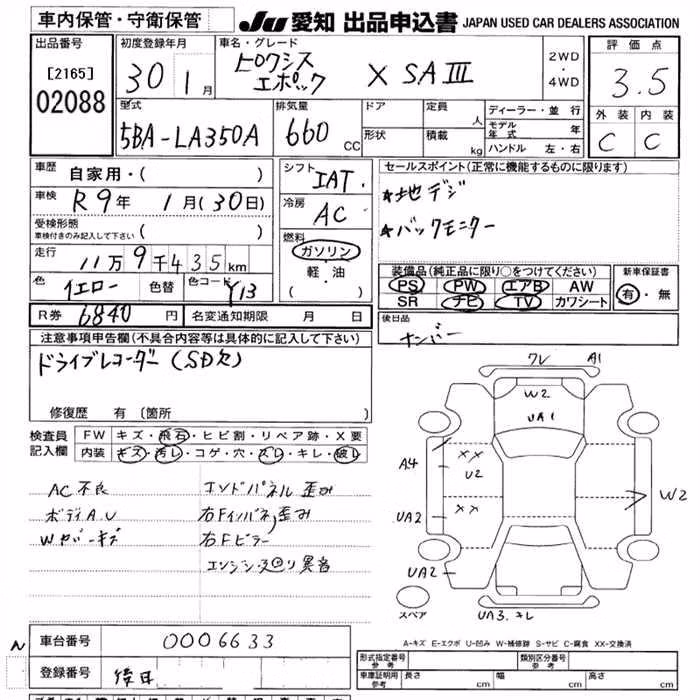 車内保管・守衛保管
JU 愛知 出品申込書 JAPAN USED CAR DEALERS ASSOCIATION
出品番号 初度登録年月 車名・グレード 評価点
[2165] 30 1月 ピクシス エポック X SAⅢ 2WD・4WD 3.5
02088
型式 排気量 ドア 定員 人 ディーラー・並行 外装 内装
5BA-LA350A 660 CC 形状 積載 kg モデル年式 年 C C
ハンドル 左・右
車歴 自家用・( ) シフト IAT セールスポイント(正常に機能するものに限ります)
車検 R9年 1月(30日) 冷房 AC ★地デジ
受検形態 車検付きのみ記入して下さい ( ) ★バックモニター
走行 11万9千435km 燃料 ガソリン 軽・油 ( )
色 イエロー 色替 色コード Y13
装備品(純正品に限り○をつけてください) 新車保証書
PS PW エアB AW 有・無
SR ナビ TV カワシート
R券 6840円 名変通知期限 月 日 後日品
ナンバー
注意事項申告欄(不具合内容等は具体的に記入して下さい)
ドライブレコーダー(SD欠)
修復歴 有〔箇所 〕
検査員記入欄 FW キズ・飛石・ヒビ割・リペア跡・X要
内装 キズ・汚レ・コゲ・穴・スレ・キレ・破レ
AC不良 エンドパネル歪み
ボディA.U 右Fインパネ歪み
右Fピラー
異音
ワレ A1
W2
UA1
A4 XX
U2
XX
W2
UA2
UA2
スペア UA3.キレ
A-キズ E-エクボ U-凹み W-補修跡 S-サビ C-腐食 XX-交換済
N 車台番号 0006633
登録番号 後日
形式指定番号 参考 類別区分番号 参考
車庫証明用 参考 長さ cm 幅 cm 高さ cm